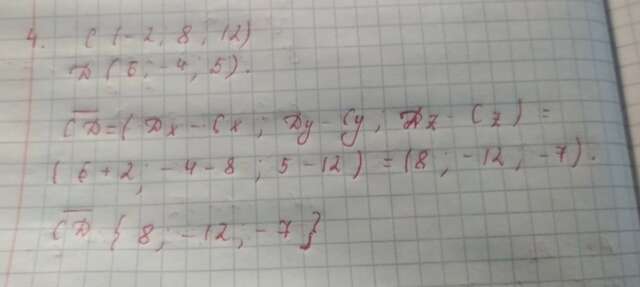 4. C (-2; 8; 12)
D (6; -4; 5).
CD=(Dx-Cx; Dy-Cy; Dz-Cz) =
(6+2; -4-8; 5-12) = (8; -12; -7).
CD {8; -12; -7}